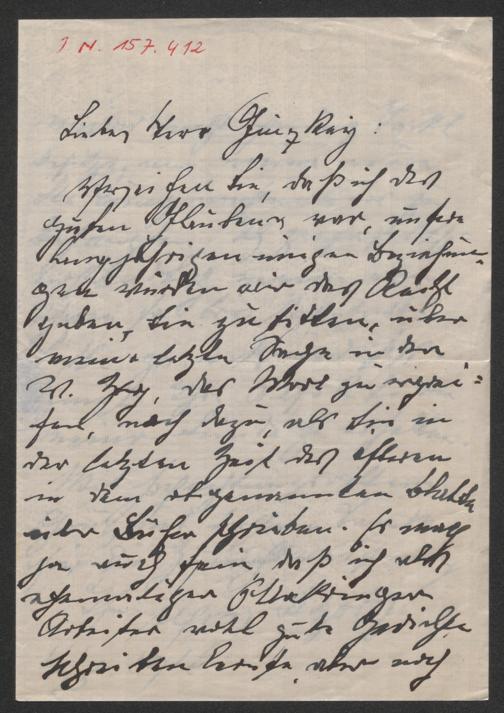 I N. 157.412
Lieber Herr Ginzkey:
Verzeihen Sie, daß ich des
guten Glaubens war, unsere
langjährigen innigen Beziehun-
gen würden mir das Recht
geben, Sie zu bitten, über
meine letzte Sache in der
W. Ztg. das Wort zu ergrei=
fen, noch dazu, als Sie in
der letzten Zeit des öfteren
in dem obgenannten Blatte
über Bücher schrieben. Es mag
ja auch sein, daß ich als
ehemaliger Ottakringer
Arbeiter wohl gute Gedichte
schreiben lernte, aber noch